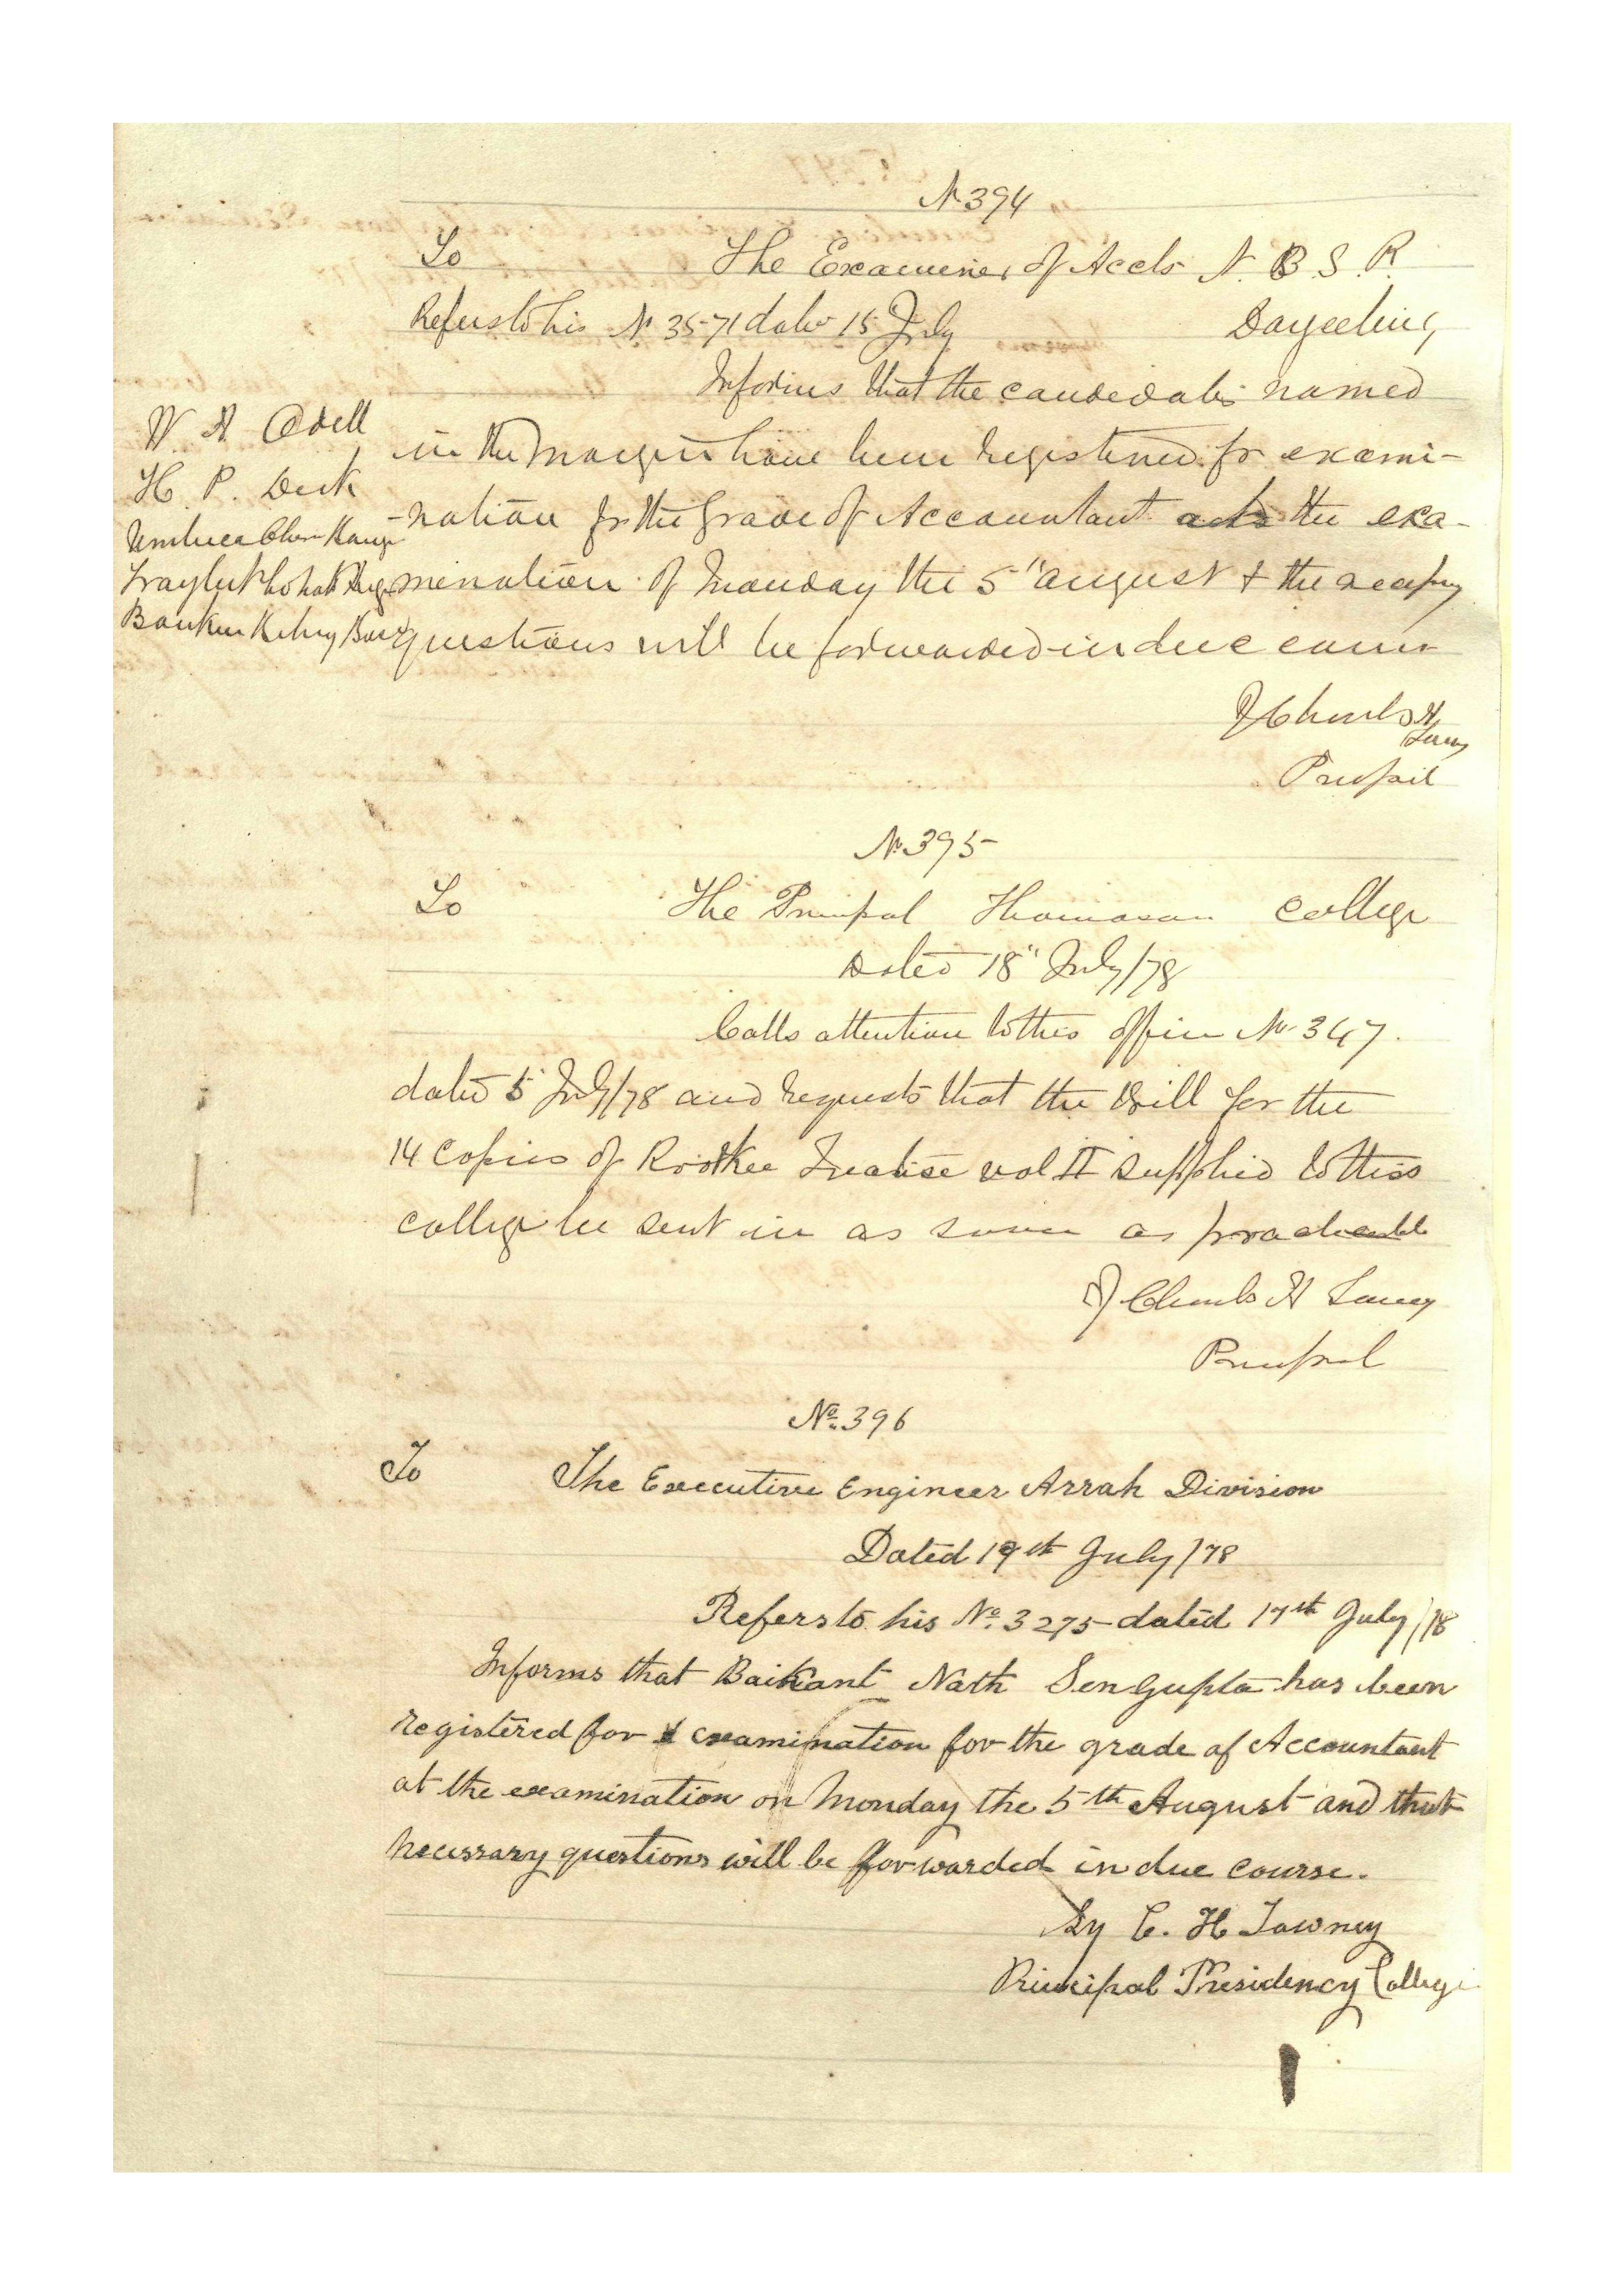 No 394
To The Examiner of Accts N. B. S. R.
Refers to his No 3571 date 15 July Darjeeling
Informs that the candidates named
W. A Odell
H. P. Deck
in the margin have been registered for exami-
-nation for the grade of Accountant at the exa-
mination of Monday the 5" August & the
questions will be forwarded in due course
Principal
No 395
To The Principal Thomason College
Dated 18" July/78
Calls attention to this office No 347.
dated 5 July/78 and requests that the Bill for the
14 copies of Roorkee Treatise vol II supplied to this
college be sent in as soon as practicable
H Tawney
Principal
No. 396
To The Executive Engineer Arrah Division
Dated 19th July/78
Refers to his No. 3275 dated 17th July/78
Informs that Baikant Nath Sen Gupta has been
registered for examination for the grade of Accountant
at the examination on Monday the 5th August and that
necessary questions will be forwarded in due course.
C. H Tawney
Principal Presidency College